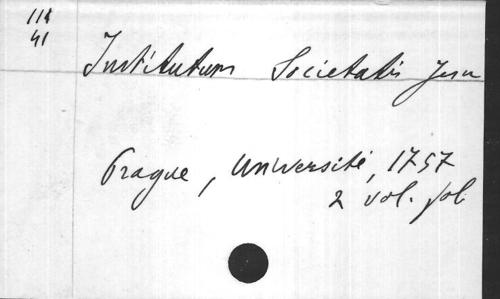 114
41
Institutum Societatis Jesu
Prague, Université, 1757
2 vol. fol.